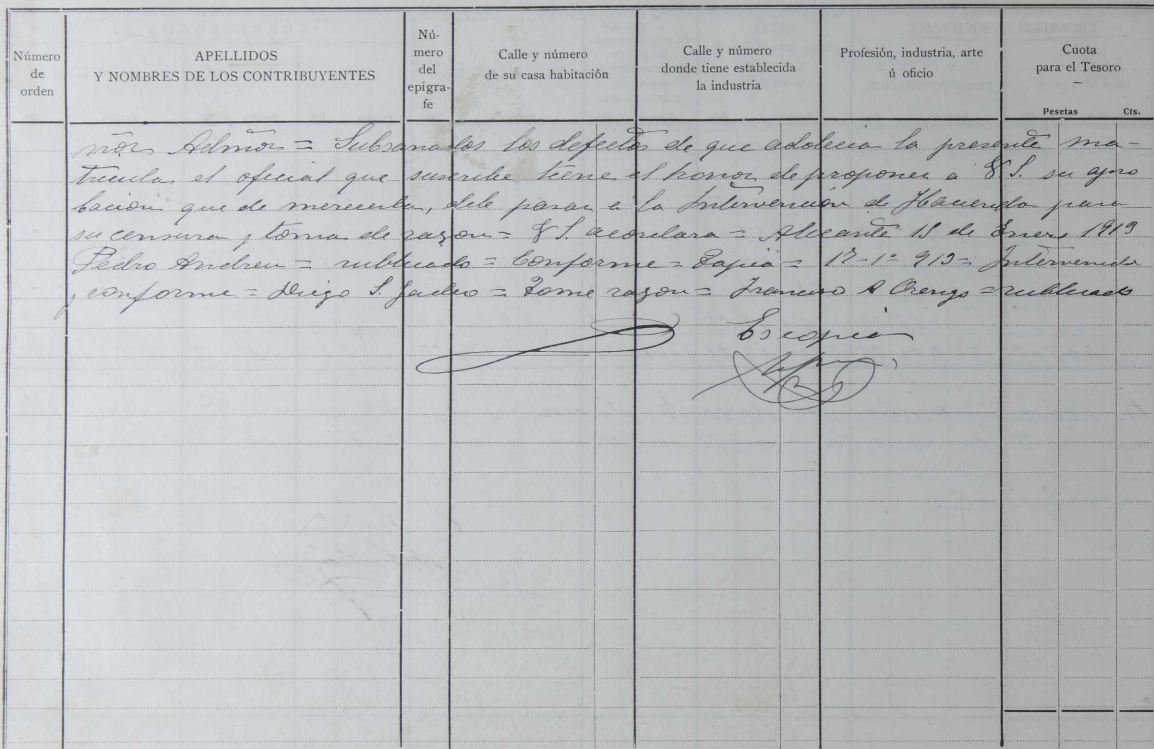 Número de orden
APELLIDOS
Y NOMBRES DE LOS CONTRIBUYENTES
Nú-
mero
del
epigra-
fe
Calle y número
de su casa habitación
Calle y número
donde tiene establecida
la industria
Profesión, industria, arte
ú oficio
Cuota
para el Tesoro
Pesetas Cts.
ñor Admor = Subsanados los defectos de que adolecia la presente ma-
tricula el oficial que suscribe tiene el honor de proponer a V. S. su apro
bacion que de merecerla, debe pasar a la Intervencion de Hacienda para
su censura y toma de razon = V S. acordara = Alicante 15 de Enero 1913
Pedro Andreu = rubricado = Conforme = Tapia = 17-1º 913 = Intervenido
y conforme = Diego S. = Tome razon = Francisco A Orengo = rubricado
Es copia